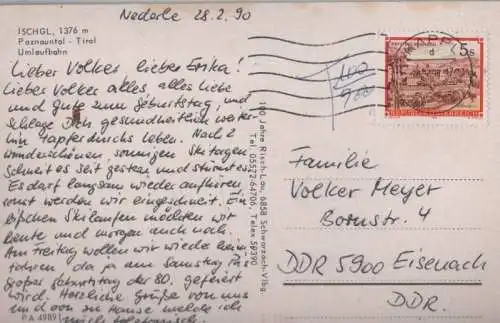 Nederle 28.2.90
ISCHGL, 1376 m
Paznauntal - Tirol
Umlaufbahn
Lieber Volker, liebe Erika!
Lieber Volker alles, alles liebe
und Gute zum Geburtstag, und
schlage Dich gesundheitlich weiter-
hin tapfer durchs Leben. Nach 2
wunderschönen, sonnigen Skitagen,
schneit es seit gestern und stürmt es
Es darf langsam wieder aufhören
sonst werden wir eingeschneit. Ein
bißchen Skilaufen möchten wir
heute und morgen auch noch.
Am Freitag wollen wir wieder heim
fahren, da ja am Samstag
großer Geburtstag der 80. gefeiert
wird. Herzliche Grüße von uns
und von zu Hause melde ich
mich telefonisch.
PA 4989
100 Jahre Risch-Lau, 6858 Schwarzach-Vlbg.
Tel. 05572-64706 Telex 59190
400
900
5 s
REPUBLIK ÖSTERREICH
Familie
Volker Meyer
Bornstr. 4
DDR 5900 Eisenach
DDR.